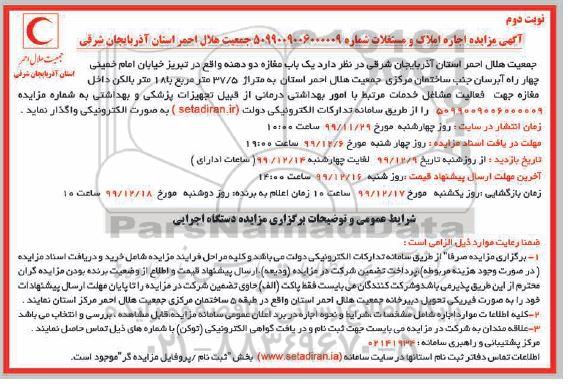 نوبت دوم
آگهی مزایده اجاره املاک و مستغلات شماره ۵۰۹۹۰۰۹۰۰۶۰۰۰۰۰۹ جمعیت هلال احمر استان آذربایجان شرقی
جمعیت هلال احمر
استان آذربایجان شرقی
جمعیت هلال احمر استان آذربایجان شرقی در نظر دارد یک باب مغازه دو دهنه واقع در تبریز خیابان امام خمینی
چهار راه آبرسان جنب ساختمان مرکزی جمعیت هلال احمر استان به متراژ ۳۷/۵ متر مربع با ۱۸ متر بالکن داخل
مغازه جهت فعالیت مشاغل خدمات مرتبط با امور بهداشتی درمانی از قبیل تجهیزات پزشکی و بهداشتی به شماره مزایده
۵۰۹۹۰۰۹۰۰۶۰۰۰۰۰۹ را از طریق سامانه تدارکات الکترونیکی دولت (setadiran.ir) به صورت الکترونیکی واگذار نماید .
زمان انتشار در سایت : روز چهارشنبه مورخ ۹۹/۱۱/۲۹ ساعت ۱۰:۰۰
مهلت دریافت اسناد مزایده : روز چهار شنبه مورخ ۹۹/۱۲/۶ ساعت ۱۹:۰۰
تاریخ بازدید : از روز شنبه تاریخ ۹۹/۱۲/۹ لغایت چهارشنبه ۹۹/۱۲/۱۴ (ساعات اداری )
آخرین مهلت ارسال پیشنهاد قیمت : روز شنبه ۹۹/۱۲/۱۶ ساعت ۱۴:۰۰
زمان بازگشایی : روز یکشنبه مورخ ۹۹/۱۲/۱۷ ساعت ۱۰ زمان اعلام به برنده: روز دوشنبه مورخ ۹۹/۱۲/۱۸ ساعت ۱۰
شرایط عمومی و توضیحات برگزاری مزایده دستگاه اجرایی
ضمنا رعایت موارد ذیل الزامی است :
۱- برگزاری مزایده صرفا" از طریق سامانه تدارکات الکترونیکی دولت می باشد و کلیه مراحل فرایند مزایده شامل خرید و دریافت اسناد مزایده
( در صورت وجود هزینه مربوطه)، پرداخت تضمین شرکت در مزایده (ودیعه)، ارسال پیشنهاد قیمت و اطلاع از وضعیت برنده بودن مزایده گران
محترم از این طریق پذیرمی باشد وشرکت کنندگان می بایست فقط پاکت (الف) حاوی تضمین شرکت در مزایده را تا پایان مهلت ارسال پیشنهادات
خود را به صورت فیزیکی تحویل دبیرخانه جمعیت هلال احمر استان واقع در طبقه ۵ ساختمان مرکزی جمعیت هلال احمر مرکز استان نمایند .
۲-کلیه اطلاعات موارد اجاره شامل مشخصات ،شرایط و نحوه اجاره در برد اعلان عمومی سامانه مزایده، قابل مشاهده ،بررسی و انتخاب می باشد
۳-علاقه مندان به شرکت در مزایده می بایست جهت ثبت نام و دریافت گواهی الکترونیکی (توکن) با شماره های ذیل تماس حاصل نمایند .
مرکز پشتیبانی و راهبری سامانه: ۰۲۱۴۱۹۳۴
اطلاعات تماس دفاتر ثبت نام استانها در سایت سامانه (www.setadiran.ir) بخش "ثبت نام /پروفایل مزایده گر"موجود است.
ParsNamadData
۰۲۱-۸۸۳۴۹۶۷۰-۵